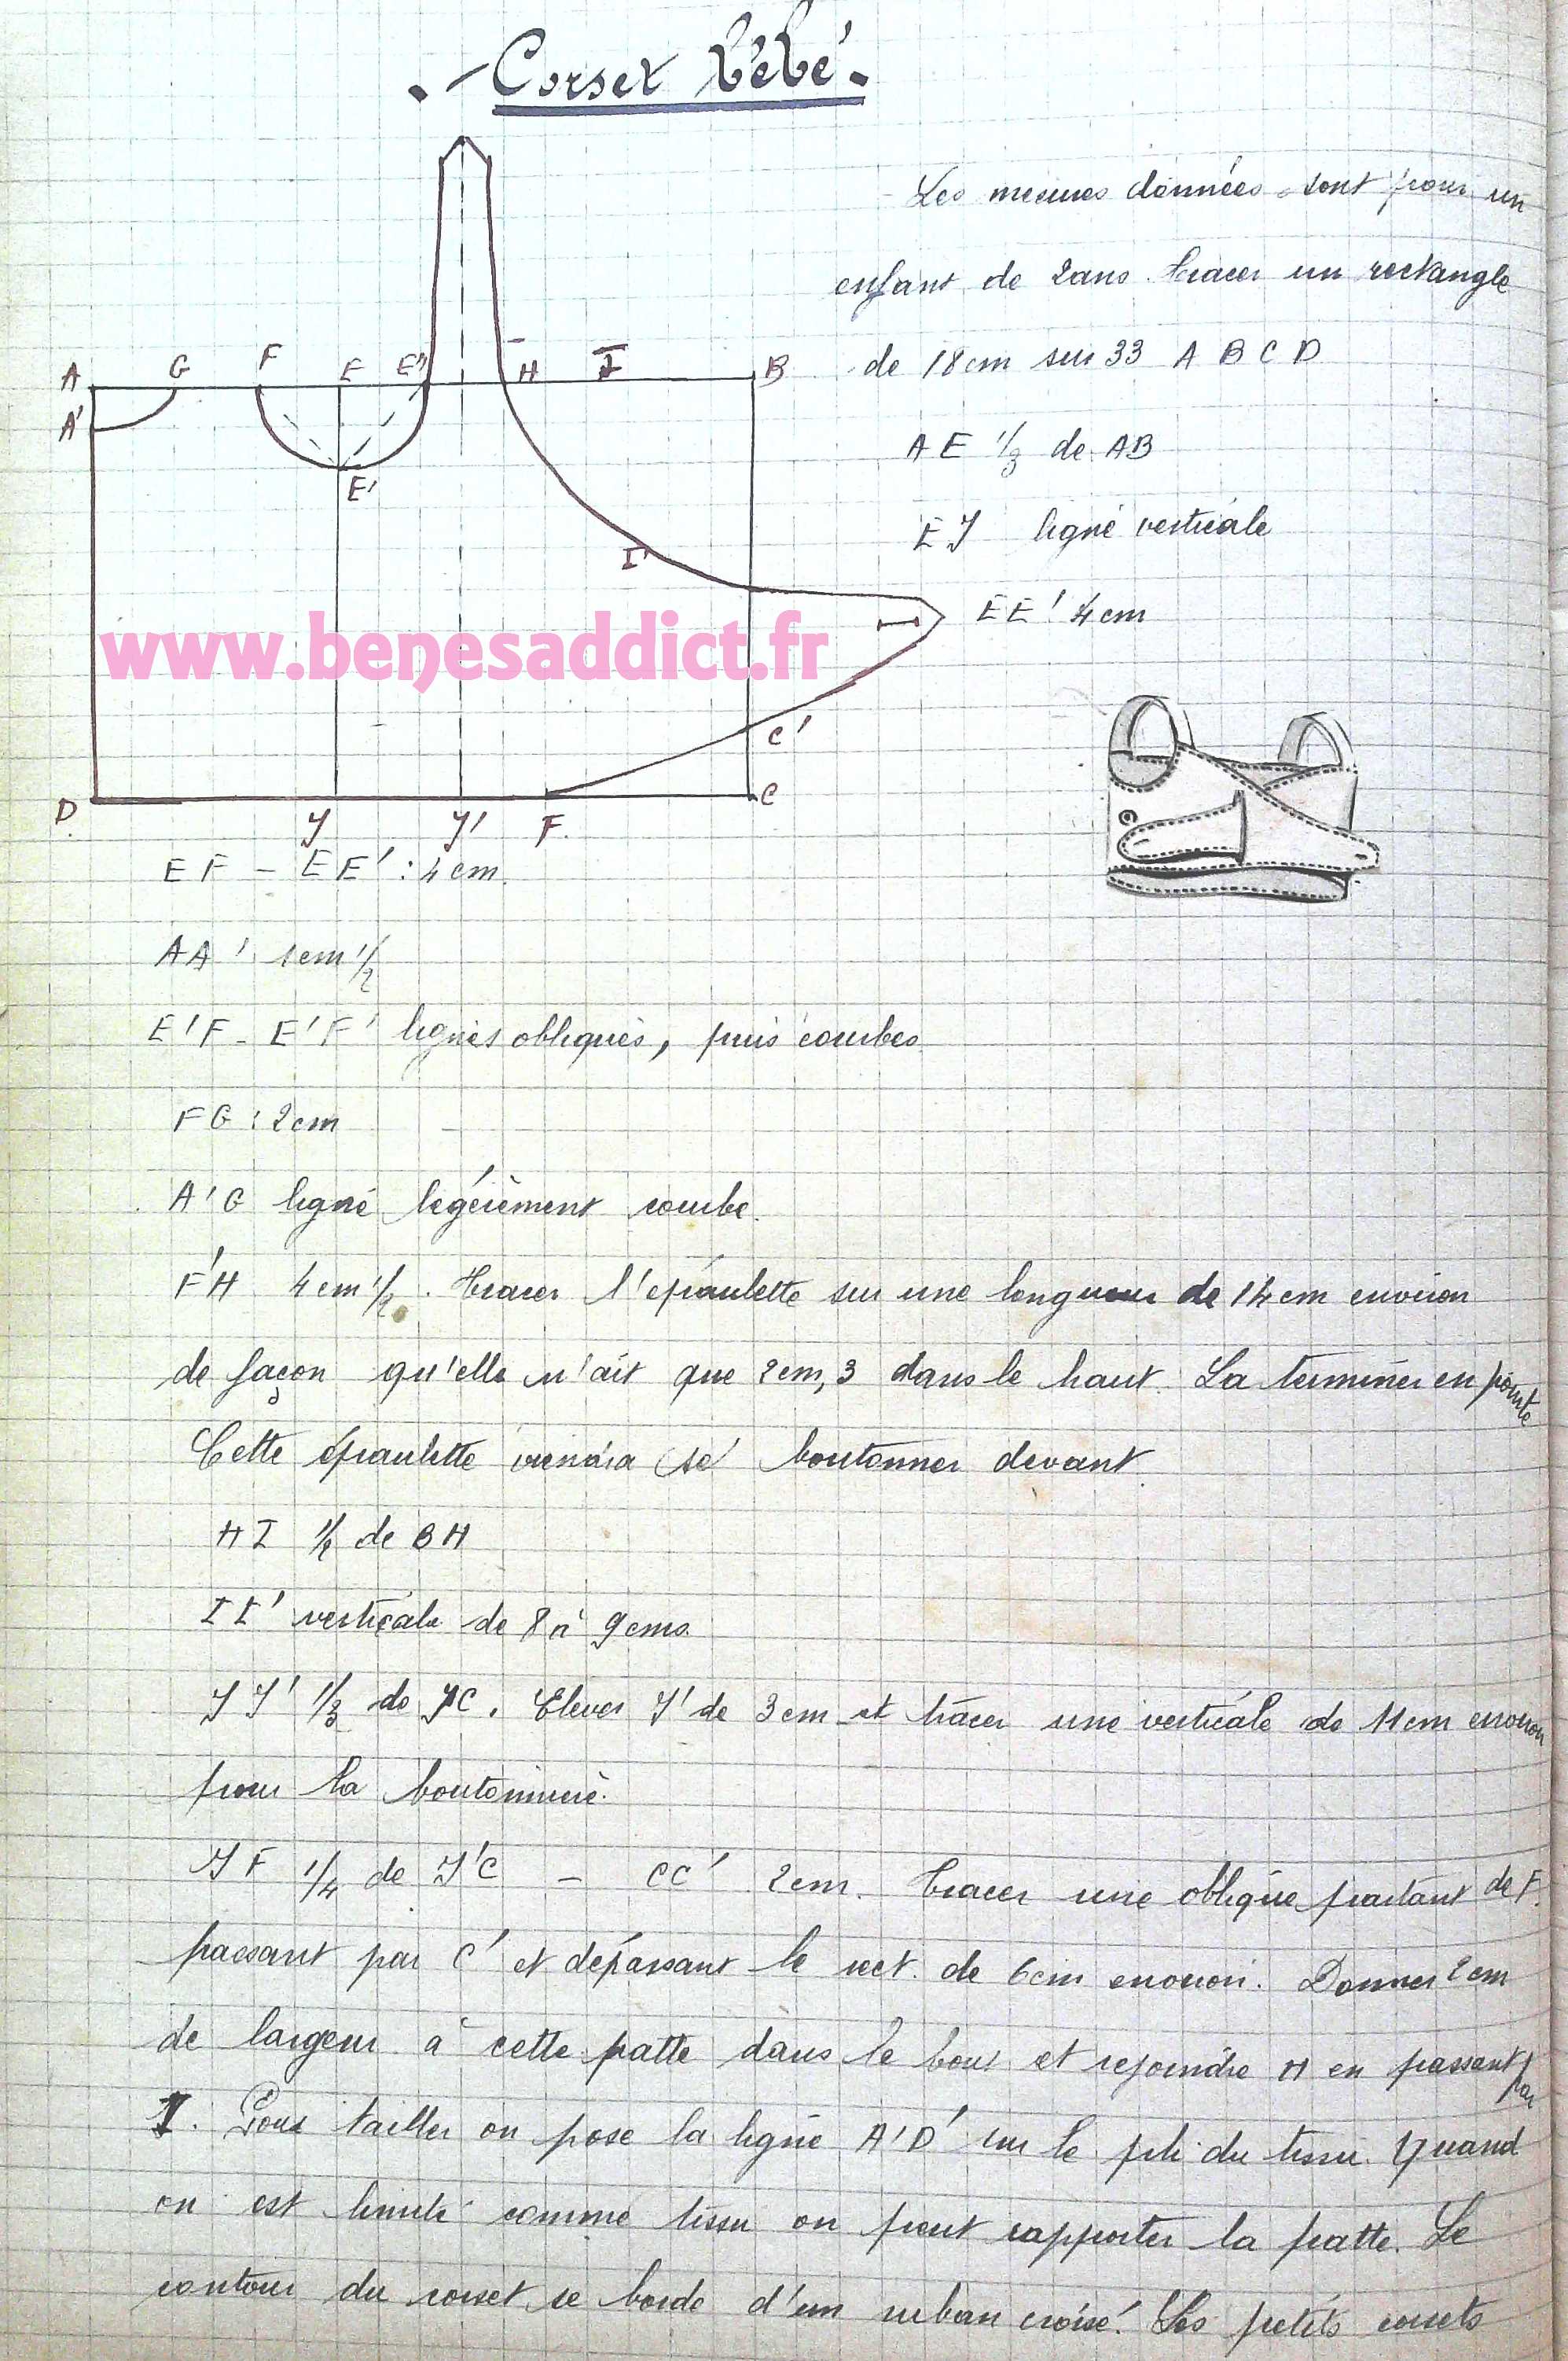 Corset bébé.
Les mesures données sont pour un
enfant de 2ans. Tracer un rectangle
de 18cm sur 33 A B C D
AE 1/3 de AB
EJ ligne verticale
EE' 4cm
A G F E E'' H I B
A'
E'
I'
www.benesaddict.fr
C'
D J J' F. C
EF - EE' : 4cm.
AA' 1cm 1/2
E'F - E'F' lignes obliques, puis courbes
FG : 2cm
A'G ligne légèrement courbe.
F'H 4cm 1/2. Tracer l'épaulette sur une longueur de 14cm environ
de façon qu'elle n'ait que 2cm,3 dans le haut. La terminer en pointe
Cette épaulette viendra se boutonner devant.
HI 1/2 de BH
II' verticale de 8 à 9cms.
JJ' 1/3 de JC. Elever J' de 3cm et tracer une verticale de 11cm environ
pour la boutonnière.
J'F 1/4 de J'C - CC' 2cm. Tracer une oblique partant de F.
passant par C' et dépassant le rect. de 6cm environ. Donner 2cm
de largeur à cette patte dans le bout et rejoindre H en passant par
I. Pour tailler on pose la ligne A'D' sur le pli du tissu. Quand
on est limité comme tissu on peut rapporter la patte. Le
contour du corset se borde d'un ruban croisé. Les petits corsets